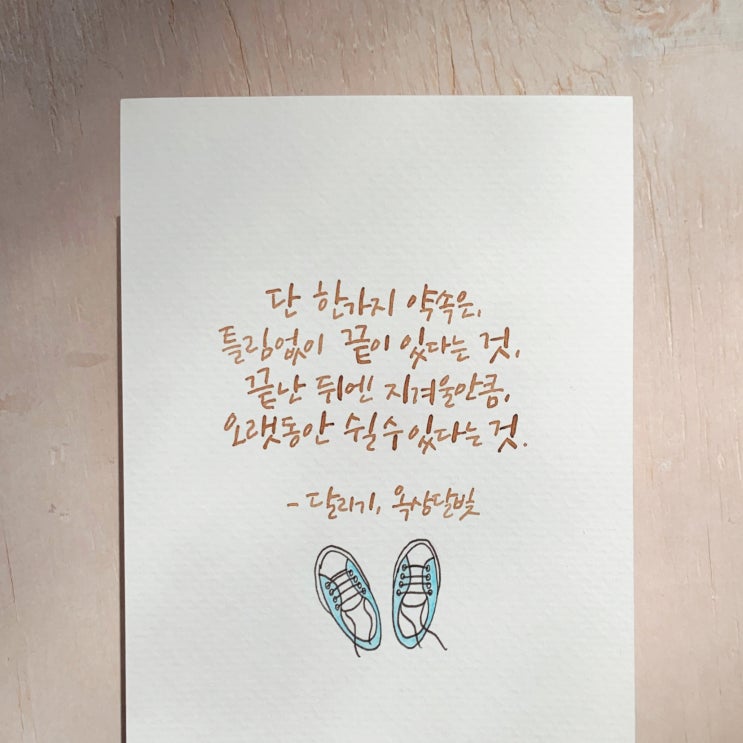 단 한가지 약속은,
틀림없이 끝이 있다는 것,
끝난 뒤엔 지겨울만큼,
오랫동안 쉴 수 있다는 것.
- 달리기, 옥상달빛